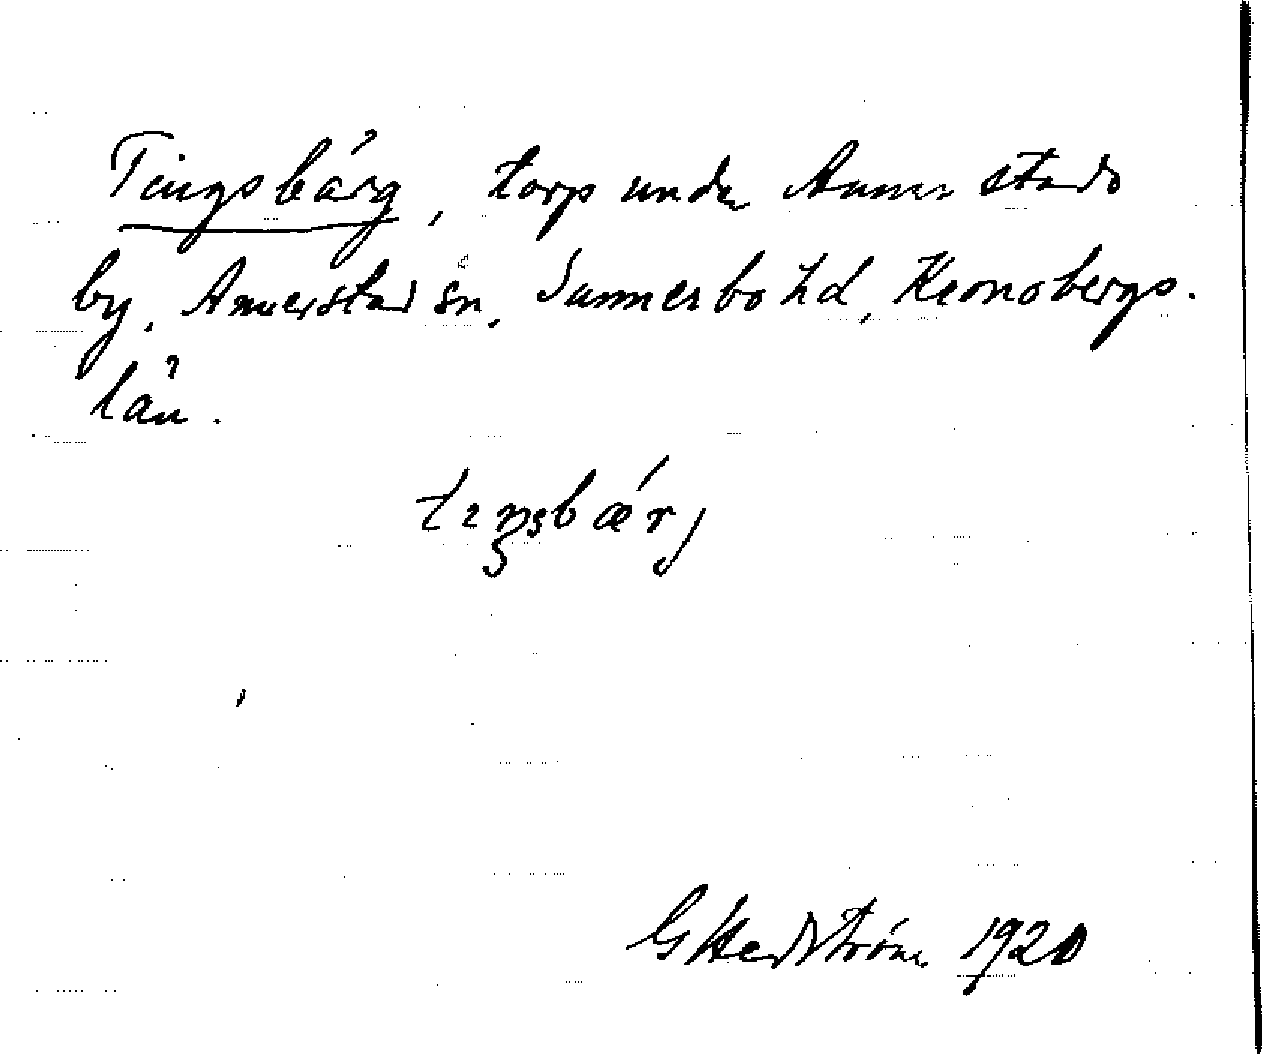 Tingsbärg, torp under Annerstads
by, Annerstad sn, Sunnerbo hd, Kronobergs
län.
tıŋsbæŕj
GHedström 1920